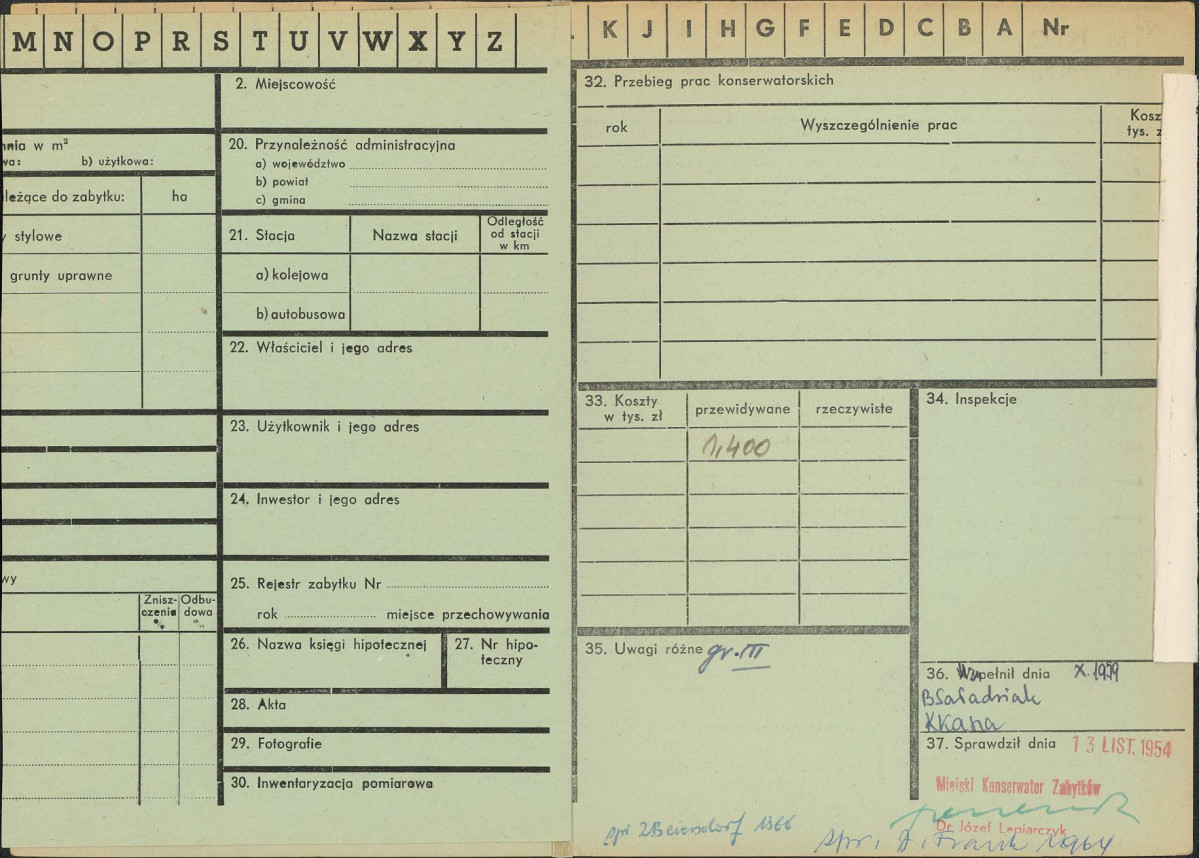 M N O P R S T U V W X Y Z
2. Miejscowość
nia w m²
wa: b) użytkowa:
20. Przynależność administracyjna
a) województwo
b) powiat
c) gmina
leżące do zabytku: ha
y stylowe
grunty uprawne
21. Stacja Nazwa stacji Odległość
od stacji
w km
a) kolejowa
b) autobusowa
22. Właściciel i jego adres
23. Użytkownik i jego adres
24. Inwestor i jego adres
wy
Znisz-
czenia
% Odbu-
dowa
%
25. Rejestr zabytku Nr
rok miejsce przechowywania
26. Nazwa księgi hipotecznej
27. Nr hipo-
teczny
28. Akta
29. Fotografie
30. Inwentaryzacja pomiarowa
K J I H G F E D C B A Nr
32. Przebieg prac konserwatorskich
rok Wyszczególnienie prac Kosz
tys. z
33. Koszty
w tys. zł przewidywane rzeczywiste
1,400
34. Inspekcje
35. Uwagi różne gr. III
36. Wypełnił dnia X.1959
37. Sprawdził dnia 13 LIST. 1954
Miejski Konserwator Zabytków
Dr Józef Lepiarczyk
spr. Z Beiersdorf 1966
spr. D. Frank 1964